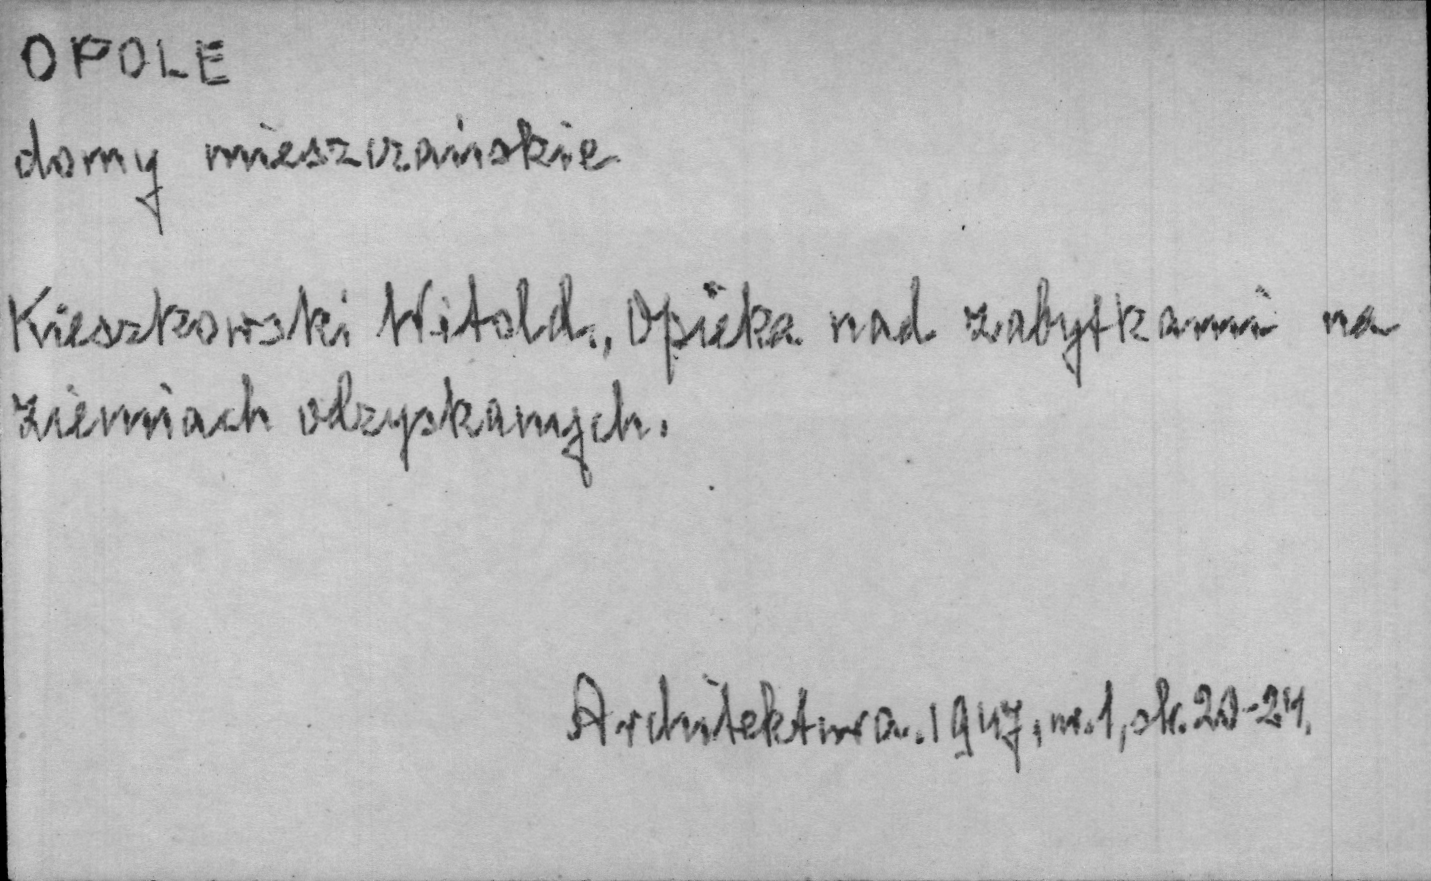 OPOLE
domy mieszczańskie
Kieszkowski Witold., Opieka nad zabytkami na
ziemiach odzyskanych.
Architektura. 1947, nr. 1, str. 20-24.